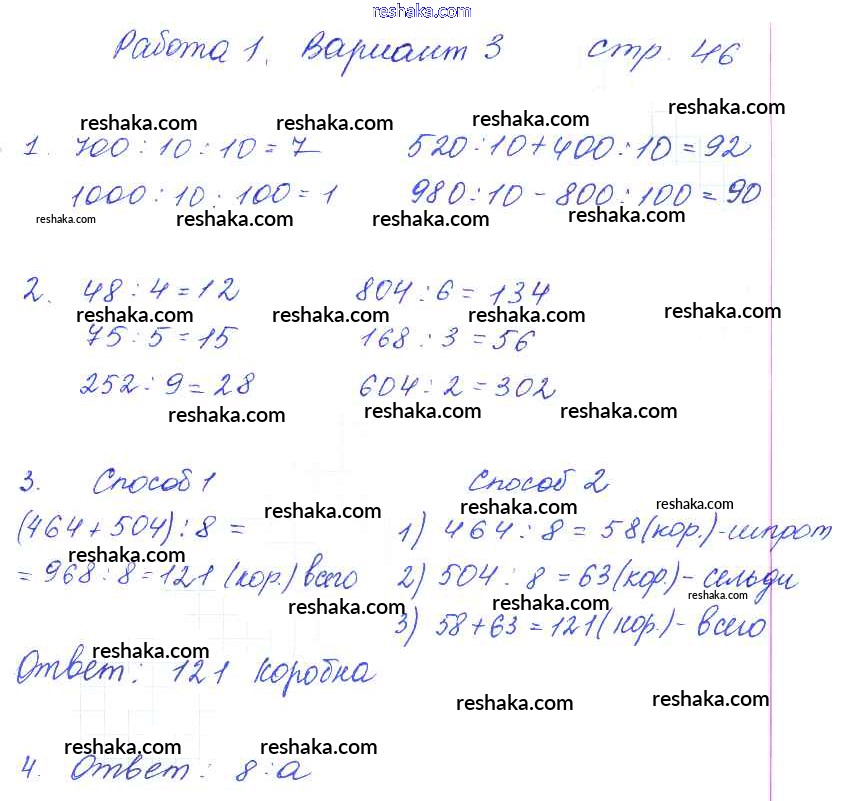 reshaka.com
Работа 1. Вариант 3 стр. 46
reshaka.com reshaka.com reshaka.com reshaka.com
1. 700 : 10 : 10 = 7 520 : 10 + 400 : 10 = 92
1000 : 10 : 100 = 1 980 : 10 - 800 : 100 = 90
reshaka.com reshaka.com reshaka.com reshaka.com
2. 48 : 4 = 12 804 : 6 = 134
reshaka.com reshaka.com reshaka.com reshaka.com
75 : 5 = 15 168 : 3 = 56
252 : 9 = 28 604 : 2 = 302
reshaka.com reshaka.com reshaka.com
3. Способ 1 Способ 2
reshaka.com reshaka.com reshaka.com
(464 + 504) : 8 = 1) 464 : 8 = 58 (кор.) - шпрот
reshaka.com
= 968 : 8 = 121 (кор.) всего 2) 504 : 8 = 63 (кор.) - сельди
reshaka.com reshaka.com reshaka.com
3) 58 + 63 = 121 (кор.) - всего
reshaka.com
Ответ: 121 коробка
reshaka.com reshaka.com
reshaka.com reshaka.com
4. Ответ: 8 : а